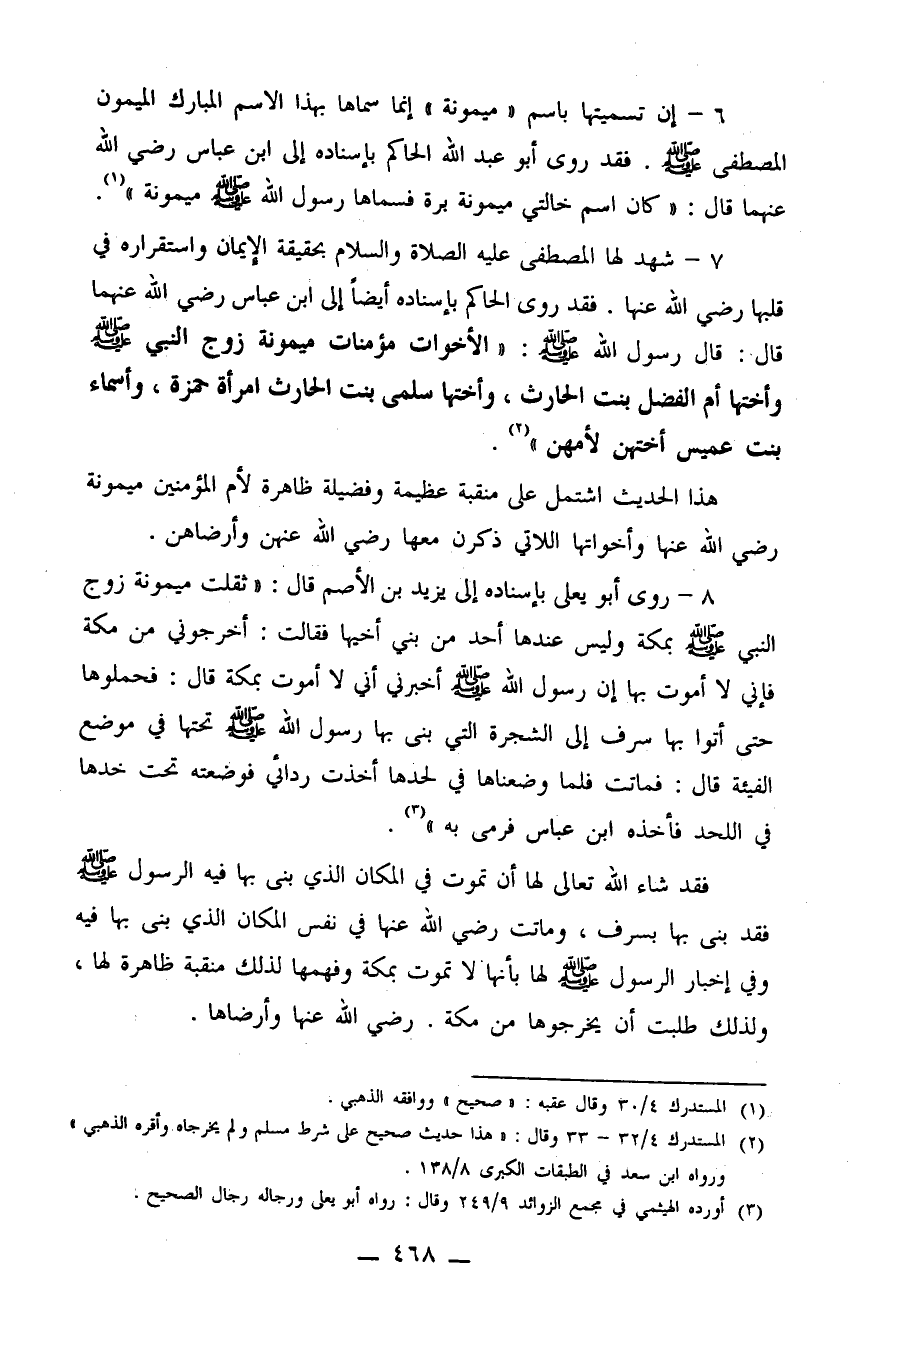 ٦ – إن تسميتها باسم « ميمونة » إنما سماها بهذا الاسم المبارك الميمون
المصطفى ﷺ . فقد روى أبو عبد الله الحاكم بإسناده إلى ابن عباس رضي الله
عنهما قال : « كان اسم خالتي ميمونة برة فسماها رسول الله ﷺ ميمونة »(١).
٧ – شهد لها المصطفى عليه الصلاة والسلام بحقيقة الإيمان واستقراره في
قلبها رضي الله عنها . فقد روى الحاكم بإسناده أيضاً إلى ابن عباس رضي الله عنهما
قال : قال رسول الله ﷺ : « الأخوات مؤمنات ميمونة زوج النبي ﷺ
وأختها أم الفضل بنت الحارث ، وأختها سلمى بنت الحارث امرأة حمزة ، وأسماء
بنت عميس أختهن لأمهن »(٢) .
هذا الحديث اشتمل على منقبة عظيمة وفضيلة ظاهرة لأم المؤمنين ميمونة
رضي الله عنها وأخواتها اللاتي ذكرن معها رضي الله عنهن وأرضاهن .
٨ – روى أبو يعلى بإسناده إلى يزيد بن الأصم قال : « ثقلت ميمونة زوج
النبي ﷺ بمكة وليس عندها أحد من بني أخيها فقالت : أخرجوني من مكة
فإني لا أموت بها إن رسول الله ﷺ أخبرني أني لا أموت بمكة قال : فحملوها
حتى أتوا بها سرف إلى الشجرة التي بنى بها رسول الله ﷺ تحتها في موضع
الفيئة قال : فماتت فلما وضعناها في لحدها أخذت ردائي فوضعته تحت خدها
في اللحد فأخذه ابن عباس فرمى به »(٣) .
فقد شاء الله تعالى لها أن تموت في المكان الذي بنى بها فيه الرسول ﷺ
فقد بنى بها بسرف ، وماتت رضي الله عنها في نفس المكان الذي بنى بها فيه
وفي إخبار الرسول ﷺ لها بأنها لا تموت بمكة وفهمها لذلك منقبة ظاهرة لها ،
ولذلك طلبت أن يخرجوها من مكة . رضي الله عنها وأرضاها .
(١) المستدرك ٣٠/٤ وقال عقبه : « صحيح » ووافقه الذهبي .
(٢) المستدرك ٣٢/٤ – ٣٣ وقال : « هذا حديث صحيح على شرط مسلم ولم يخرجاه وأقره الذهبي »
ورواه ابن سعد في الطبقات الكبرى ١٣٨/٨ .
(٣) أورده الهيثمي في مجمع الزوائد ٢٤٩/٩ وقال : رواه أبو يعلى ورجاله رجال الصحيح .
— ٤٦٨ —